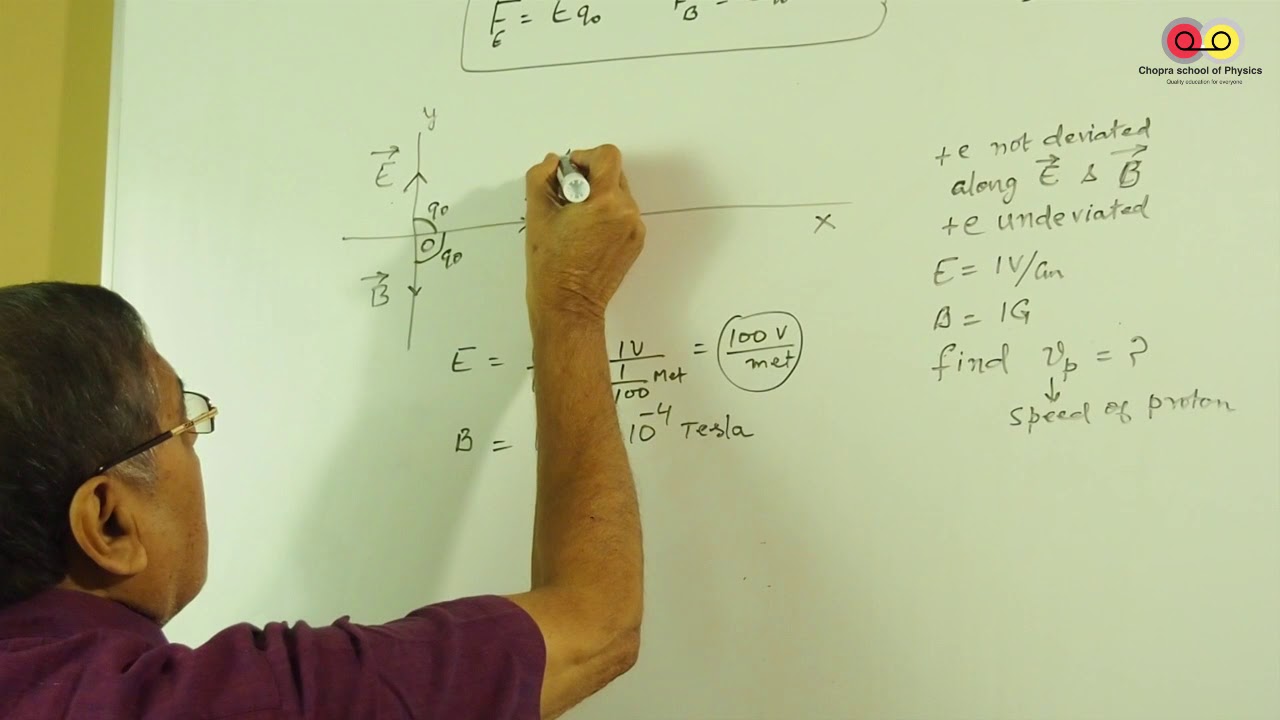 F_E = Eq₀
B =
Chopra school of Physics
Quality education for everyone
y
E⃗
90
O
90
x
B⃗
E = 1V / 1/100 Met = 100 V / met
B = 10⁻⁴ Tesla
+e not deviated
along E⃗ & B⃗
+e undeviated
E = 1V/cm
B = 1G
find v_p = ?
↓
speed of proton